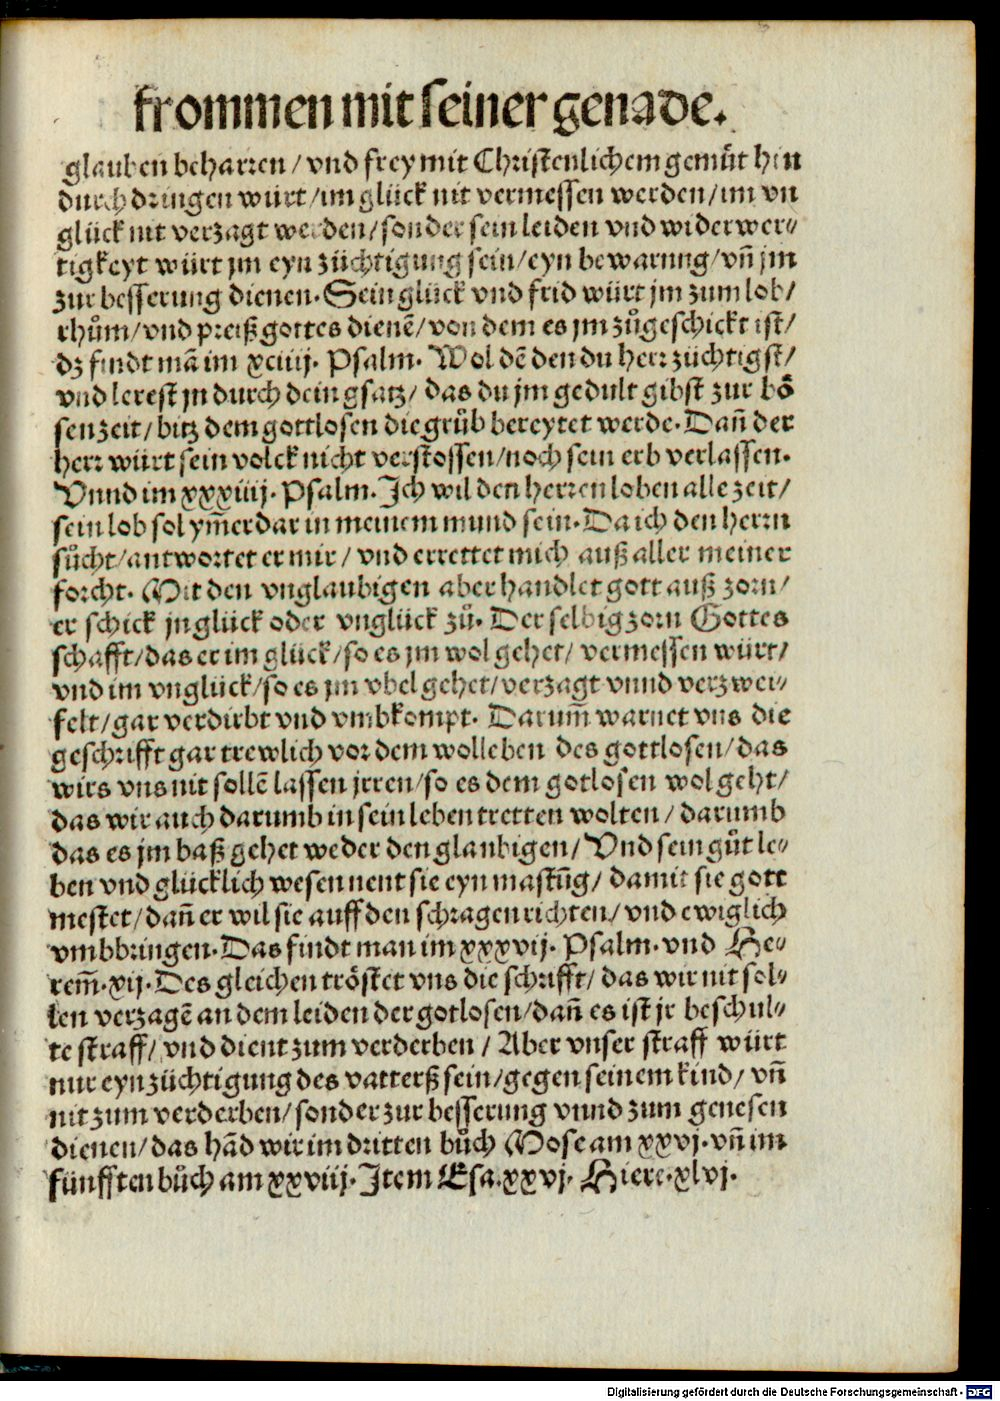 frommen mit seiner genade.
glauben beharren / vnd frey mit Christenlichem gemüt hin
durch dringen würt / im glück nit vermessen werden / im vn
glück nit verzagt werden / sonder sein leiden vnd widerwer⸗
tigkeyt würt jm eyn züchtigung sein / eyn bewarung / vñ jm
zur besserung dienen. Sein glück vnd frid würt jm zum lob /
rhům / vnd preiß gottes dienẽ / von dem es jm zůgeschickt ist /
dz findt mã im xciiij. Psalm. Wol dẽ den du herr züchtigst /
vnd lerest jn durch dein gsatz / das du jm gedult gibst zur bö
sen zeit / bitz dem gottlosen die grůb bereytet werde. Dañ der
herr würt sein volck nicht verstossen / noch sein erb verlassen.
Vnnd im xxxiiij. Psalm. Ich wil den herren loben alle zeit /
sein lob sol ym̃erdar in meinem mund sein. Da ich den herrn
sůcht / antwortet er mir / vnd errettet mich auß aller meiner
forcht. Mit den vnglaubigen aber handlet gott auß zorn /
er schick jn glück oder vnglück zů. Der selbig zorn Gottes
schafft / das er im glück / so es jm wol gehet / vermessen würt /
vnd im vnglück / so es jm vbel gehet / verzagt vnnd verzwei⸗
felt / gar verdirbt vnd vmbkompt. Darum̃ warnet vns die
geschrifft gar trewlich vor dem wolleben des gottlosen / das
wirs vns nit sollẽ lassen jrren / so es dem gotlosen wol geht /
das wir auch darumb in sein leben tretten wolten / darumb
das es jm baß gehet weder den glaubigen / Vnd sein gůt le⸗
ben vnd glücklich wesen nent sie eyn mastũg / damit sie gott
mestet / dañ er wil sie auff den schragen richten / vnd ewiglich
vmbbringen. Das findt man im xxxvij. Psalm. vnd He⸗
rem̃. xij. Des gleichen tröstet vns die schrifft / das wir nit sol⸗
len verzagẽ an dem leiden der gotlosen / dañ es ist jr beschul⸗
te straff / vnd dient zum verderben / Aber vnser straff würt
nur eyn züchtigung des vatterß sein / gegen seinem kind / vñ
nit zum verderben / sonder zur besserung vnnd zum genesen
dienen / das hãd wir im dritten bůch Mose am xxvj. vñ im
fünfften bůch am xxviij. Item Esa. xxvj. Hiere. xlvj.
Digitalisierung gefördert durch die Deutsche Forschungsgemeinschaft - DFG